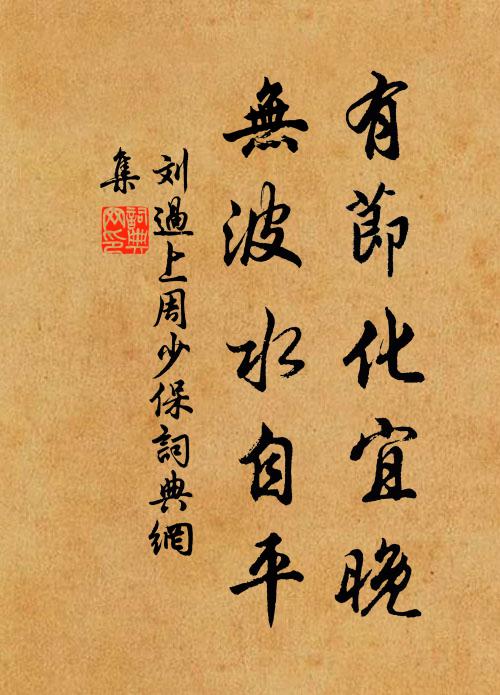 有節化宜晚
無波水自平
刘過上周少保詞典網
集
詞典網印